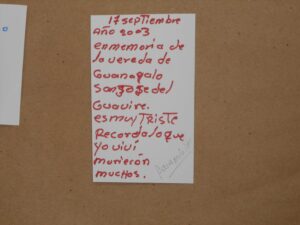 17 septiembre
Año 2003
en memoria de
la vereda de
Guanapalo
San Jose del
Guavire.
es muy Triste
Recordalo que
yo viví
murierón
muchos.